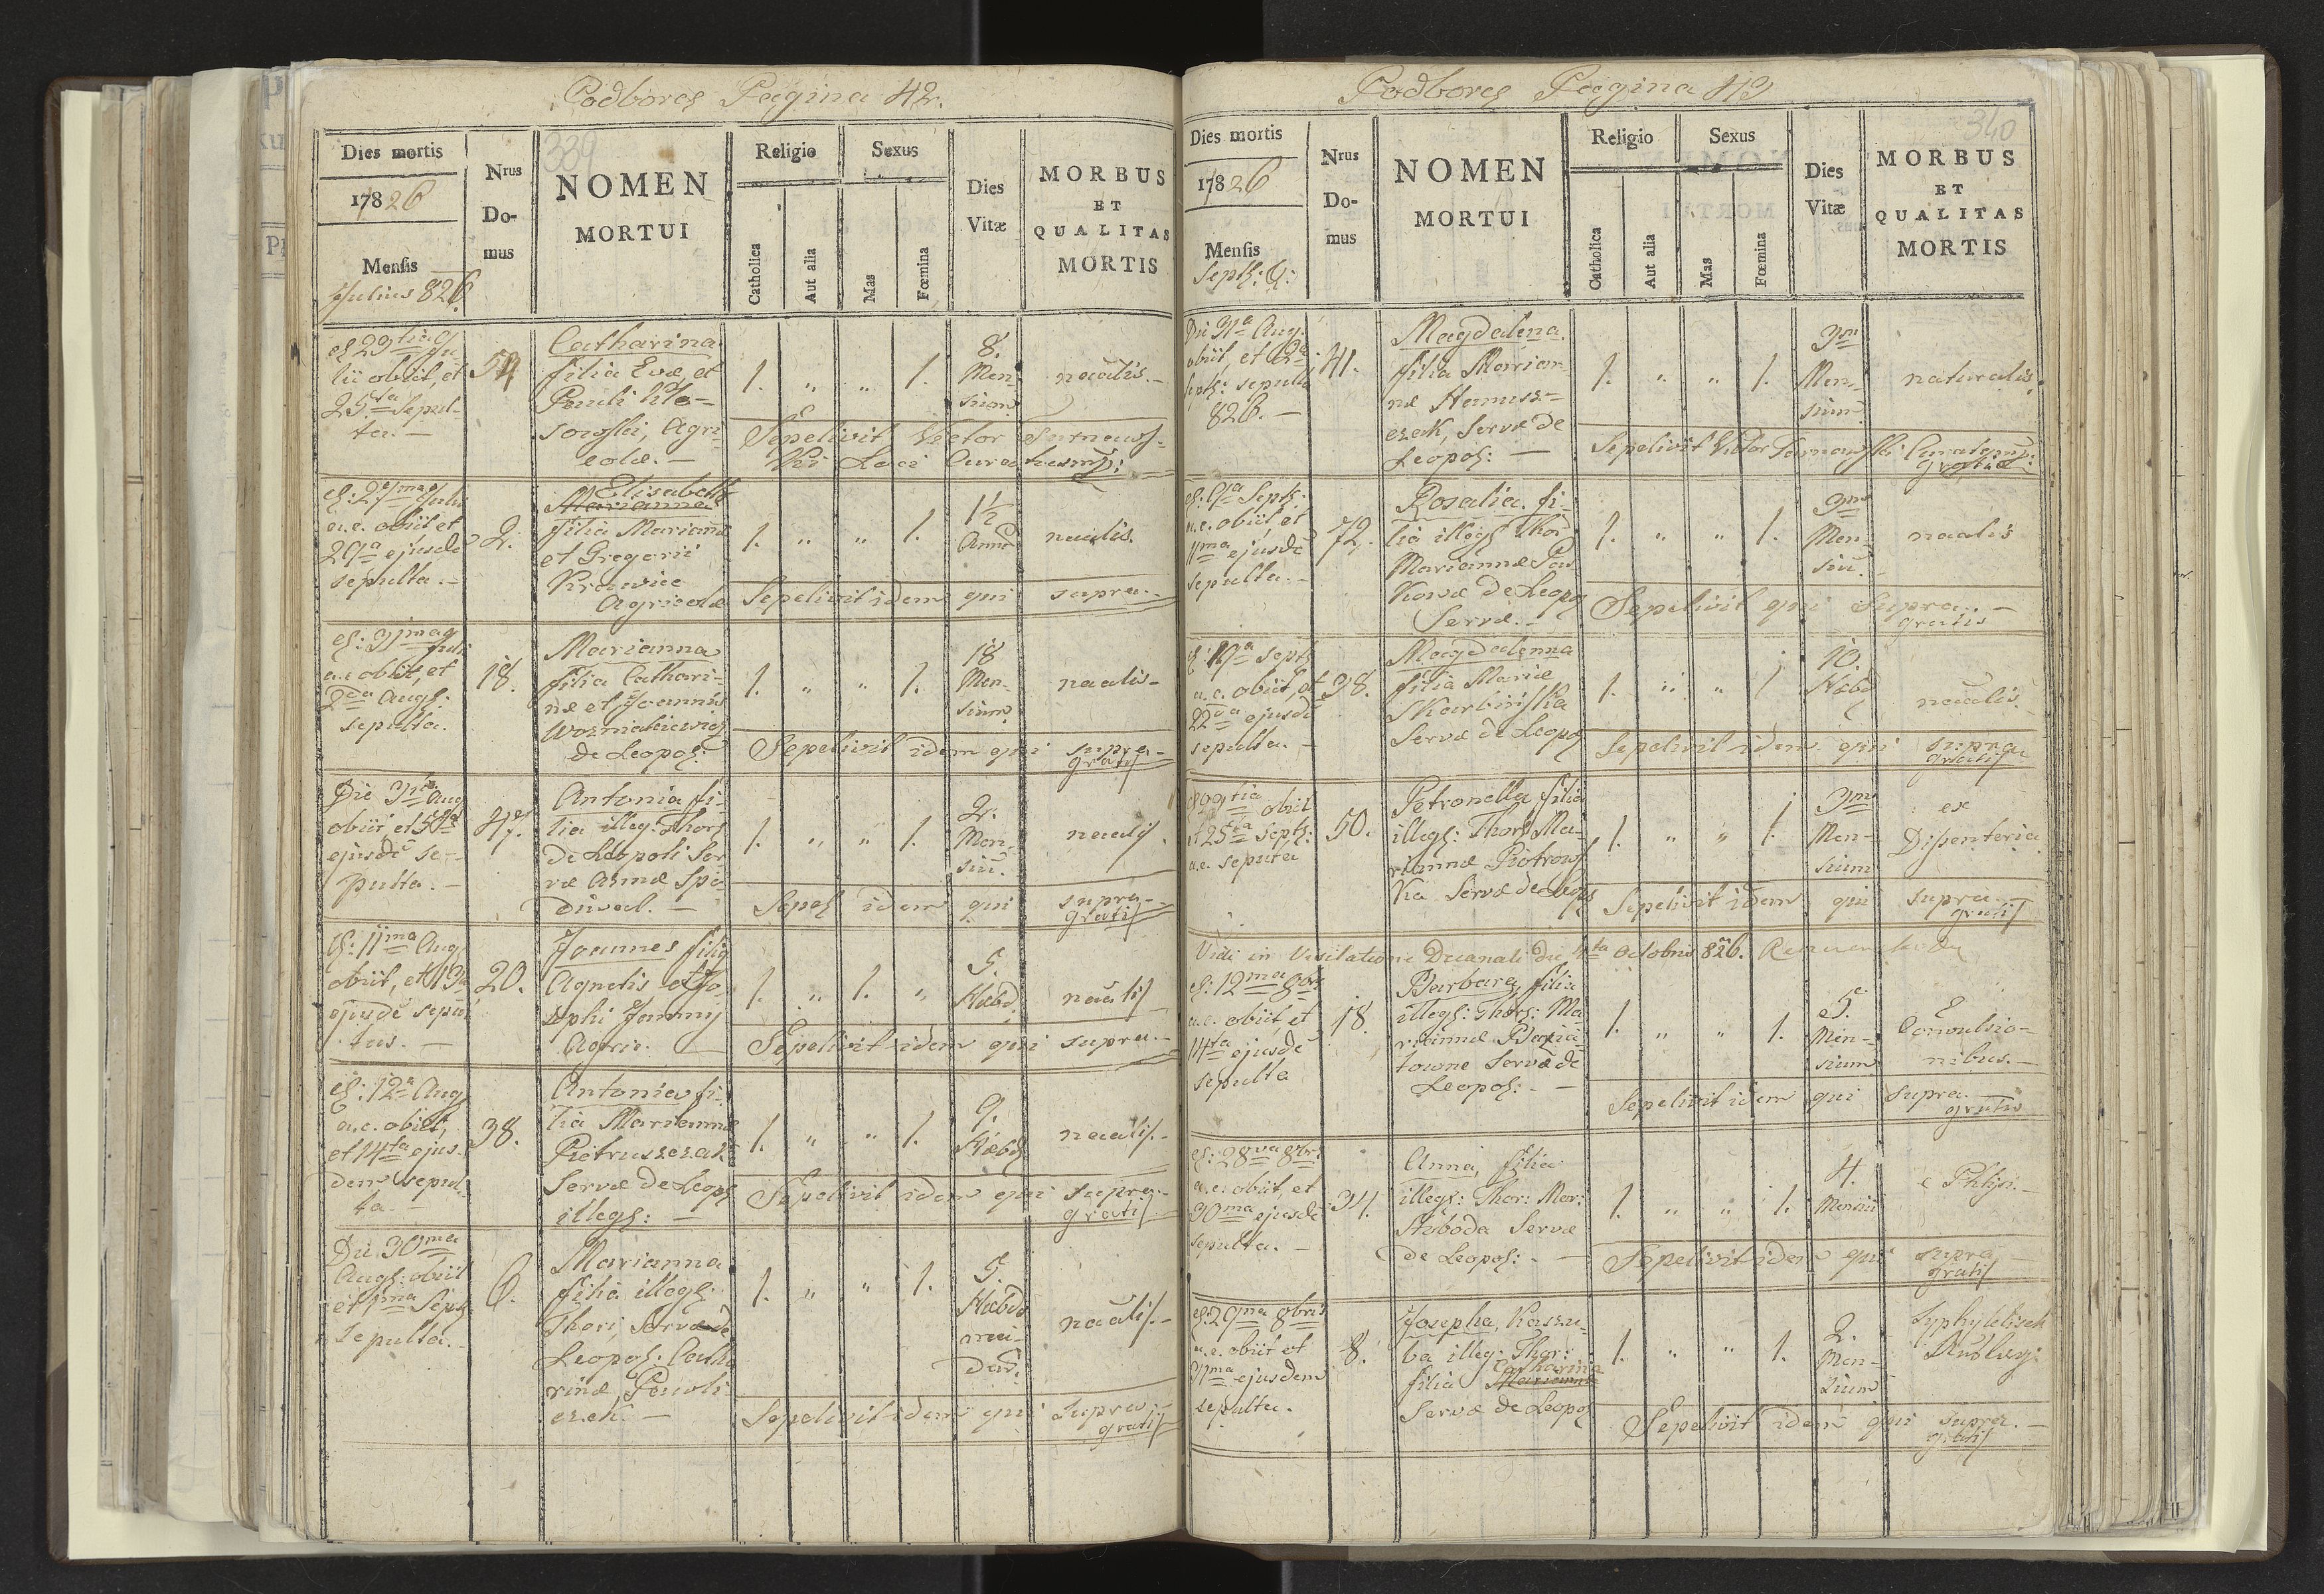 Podborcz Pagina 42.
339
Dies mortis
Nrus
Do-
mus
NOMEN
MORTUI
Religio
Sexus
Dies
Vitæ
MORBUS
ET
QUALITAS
MORTIS
17826
Mensis
Julius 826
Catholica
Aut alia
Mas
Fœmina
d: 23tia Ju-
lii obiit, et
25ta sepul-
ta. —
54
Catharina
filia Evæ, et
Pauli
Agri-
colæ. —
1. „ „ 1.
8.
Men-
sium
nåalis. —
Sepelivit Victor Tarnows-
ki Loci
d: 27ma Julii
a.c. obiit et
29a ejusde
sepulta. —
2.
Elisabetha
Marianna
filia Mariannæ
et Gregorii
Krawiec
Agricolæ
1. „ „ 1.
1½
Anni
naalis.
Sepelivit idem qui supra. —
d: 31ma Julii
a.c. obiit, et
2da Augs:
sepulta.
18.
Marianna
filia Cathari-
næ et Joannis
de Leopol:
1. „ „ 1.
18
Men-
sium
naalis —
Sepelivit idem qui supra —
gratis
Die 3tia Aug
obiit, et 5ta
ejusdē se-
pulta. —
47.
Antonia fi-
lia illeg: Thori
de Leopoli Ser-
væ Annæ
1. „ „ 1.
2.
Men-
siū.
naalis.
Sepel idem qui supra —
gratis
d: 11ma Aug
obiit, et 13a
ejusdē sepul
tus. —
20.
Joannes filius
Agnetis et Jo-
sephi
Agric. —
1. „ 1. „
5.
Hæbd.
nåalis
Sepelivit idem qui supra. —
d: 12a Aug
a.c. obiit,
et 14ta ejus-
dem sepul-
ta. —
38.
Antonia fi-
lia Mariannæ
Pietruszczak
Servæ de Leopol
illegs: —
1. „ „ 1.
9.
Hæbd
naalis. —
Sepelivit idem qui supra. —
gratis
Die 30ma
Augs: obiit
et 1ma Sept
sepulta. —
6.
Marianna
filia illegs:
Thori, Servæ de
Leopol: Catha
rinæ,
1. „ „ 1.
5.
Hæbdo
ma-
dar.
nåalis. —
Sepelivit idem qui supra —
gratis
Podborcz Pagina 43
340
Dies mortis
Nrus
Do-
mus
NOMEN
MORTUI
Religio
Sexus
Dies
Vitæ
MORBUS
ET
QUALITAS
MORTIS
17826
Mensis
Catholica
Aut alia
Mas
Fœmina
Die 31a Aug.
obiit, et 2da
sept: sepulta
826. —
41.
Magdalena
filia Marian-
næ Hanusz-
czak, Servæ de
Leopol: —
1. „ „ 1.
3m
Men-
sium
naturalis.
Sepelivit Victor Tarnowski
gratis
d: 9a Septs:
a.c. obiit et
11ma ejusdē
sepulta. —
72.
Rosalia fi-
lia illegs Thori
Mariannæ
de Leopol
Servæ. —
1. „ „ 1.
3m
Men-
siū.
naalis
Sepelivit qui supra. —
gratis
d: 19a septs
a.c. obiit, et
22da ejusdē
sepulta. —
38.
Magdalenna
filia Mariæ
Skarbińska
Servæ de Leopol
1. „ „ 1
10.
Hæbd
nåalis.
Sepelivit idem qui supra
gratis
obiit
et 25ta septs:
a.c. sepulta
50.
Petronella filia
illegs: Thori Ma-
riannæ Piotrows-
ka Servæ de Leopol
1. „ „ 1.
3m
Men-
sium
ex
Dissenteria
Sepelivit idem qui supra —
gratis
Vidi in Visitatione Decanali die 4ta Octobris 826.
d: 12ma 8bris
a.c. obiit, et
14ta ejusdē
sepulta
18.
Barbara, filia
illegs: Thori: Ma-
riannæ
Servæ de
Leopol: —
1. „ „ 1.
5.
Men-
sium
E
Convulsio-
nibus. —
Sepelivit idem qui supra. —
gratis
d: 28va 8bri
a.c. obiit, et
30ma ejusdē
sepulta. —
34.
Anna, filia
illegs: Thor: Mar:
Servæ
de Leopol: —
1. „ „ 1.
4.
Mensiū
e Phtysi. —
Sepelivit idem qui supra —
gratis
d: 29na 8bris
a.c. obiit et
31ma ejusdem
sepulta.
8.
Josepha, Kaszu-
ba illeg: Thor:
Catharina
filia Marianna
Servæ de Leopol
1. „ „ 1.
2.
Men-
sium
Sepelivit idem qui supra. —
gratis